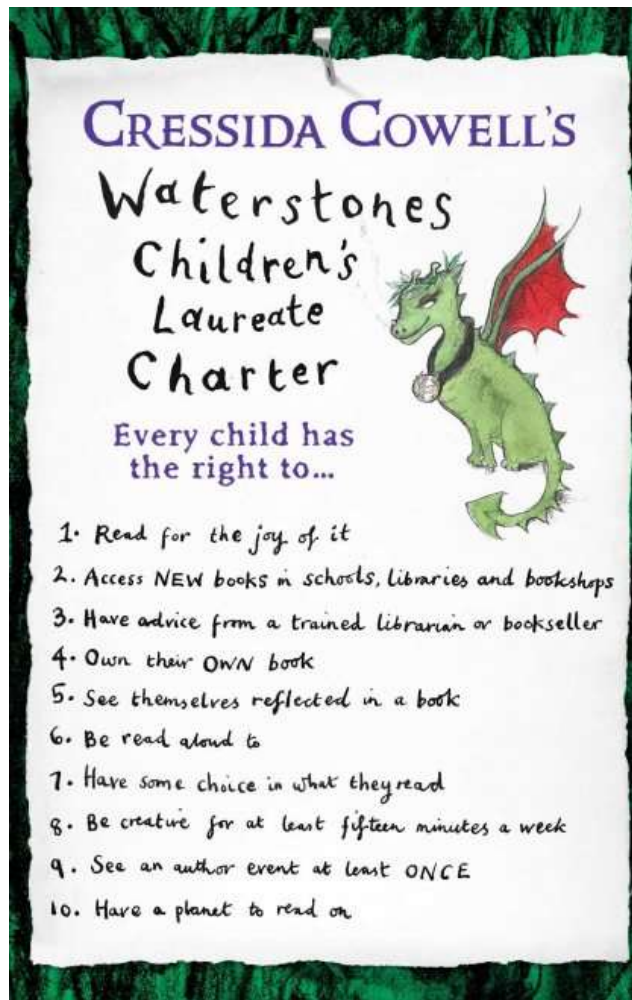 CRESSIDA COWELL'S
Waterstones
Children's
Laureate
Charter
Every child has
the right to...
1. Read for the joy of it
2. Access NEW books in schools, libraries and bookshops
3. Have advice from a trained librarian or bookseller
4. Own their OWN book
5. See themselves reflected in a book
6. Be read aloud to
7. Have some choice in what they read
8. Be creative for at least fifteen minutes a week
9. See an author event at least ONCE
10. Have a planet to read on